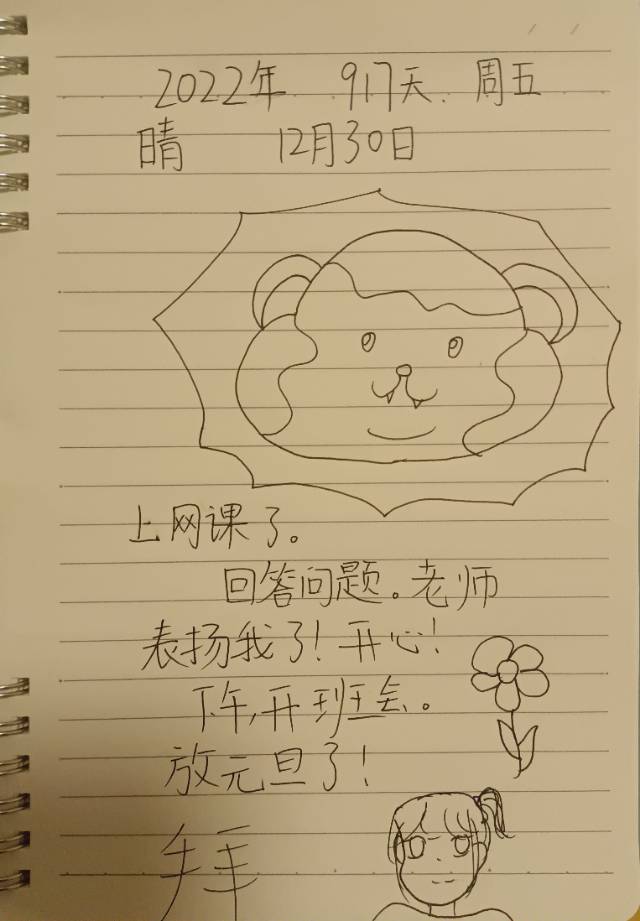 2022年 917天. 周五
晴 12月30日
上网课了。
回答问题。老师
表扬我了！开心！
下午，开班会。
放元旦了！
拜